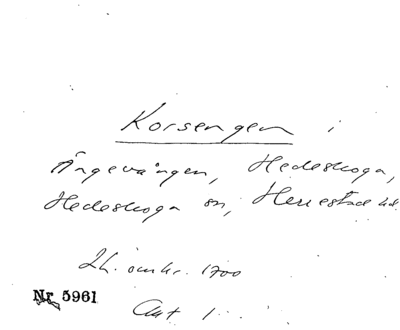 Korsengen i
Ängevången, Hedeskoga,
Hedeskoga sn, Herrestad hd.
Lh. omkr. 1700
Nr 5961
Akt 1